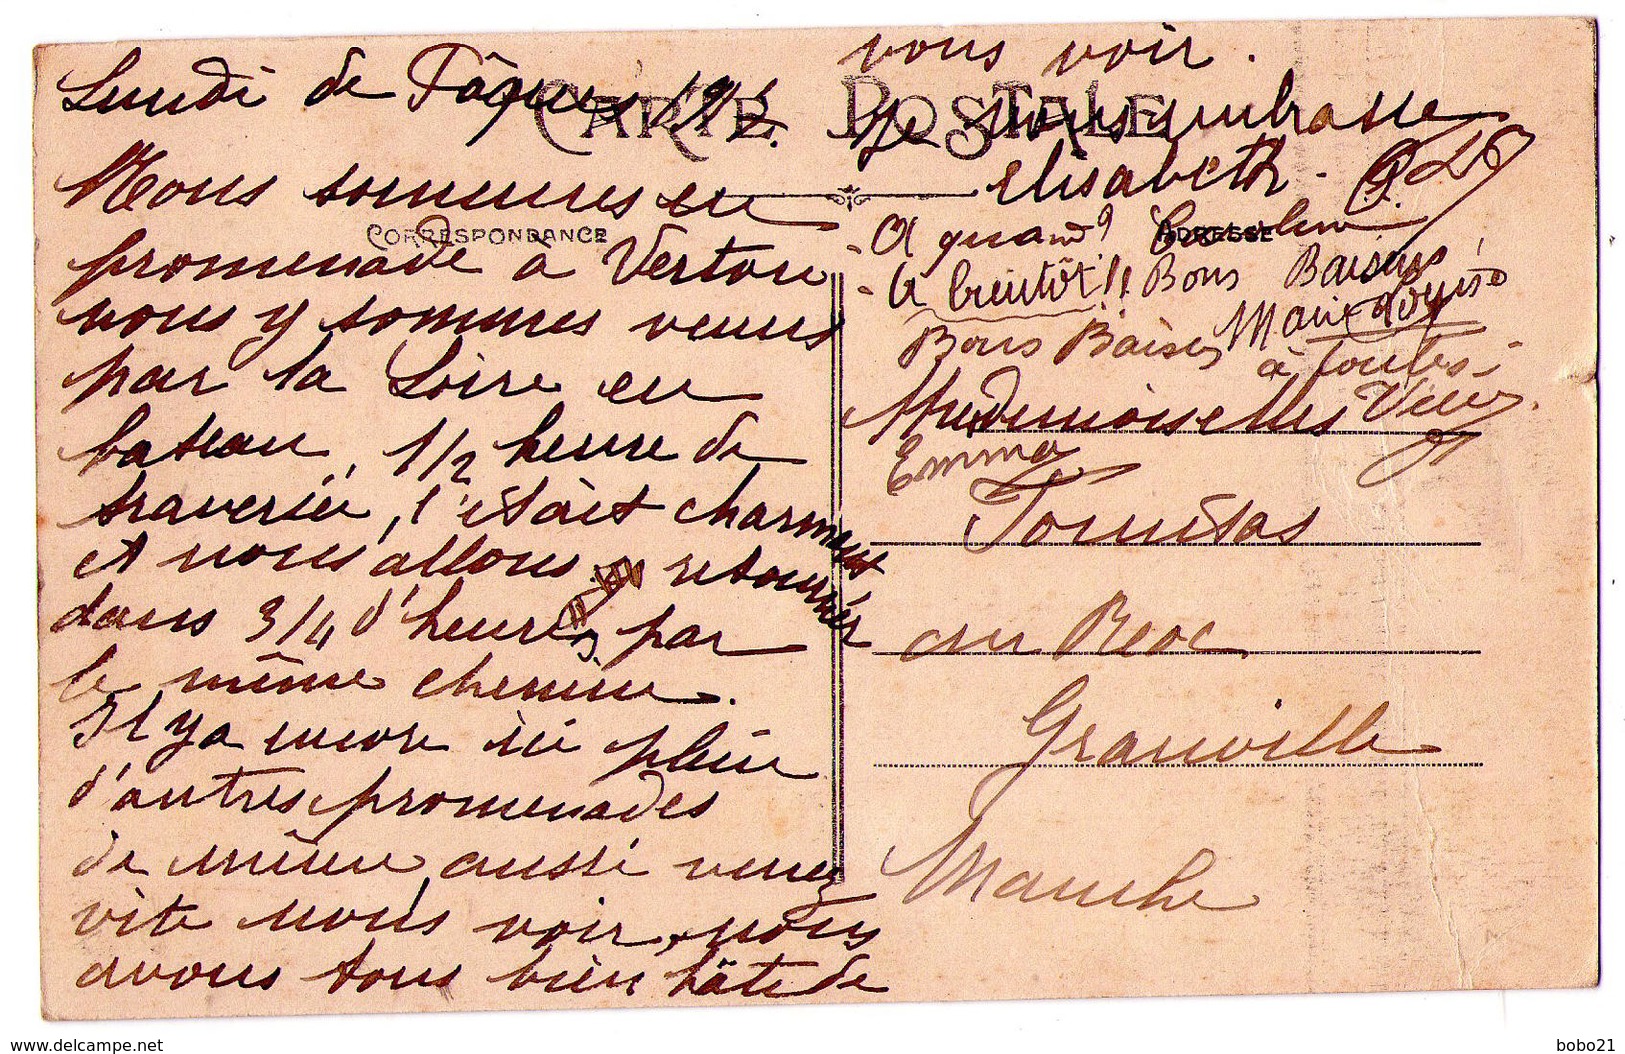 Lundi de Pâques
CARTE POSTALE
CORRESPONDANCE
Nous sommes en
promenade à Vertou
nous y sommes venus
par la Loire en
bateau, 1/2 heure de
traversée, c'était charmant
et nous allons retourner
dans 3/4 d'heures, par
le même chemin.
Il y a encore ici plein
d'autres promenades
de même, aussi venez
vite nous voir, nous
avons tous bien hâte de
vous voir.
Je vous embrasse
Elisabeth.
ADRESSE
- A quand?
- A bientôt!! Bons Baisers
Marie
Bons Baisers à toutes
Emma
Mesdemoiselles
au Roc
Granville
Manche
delcampe.net
bobo21